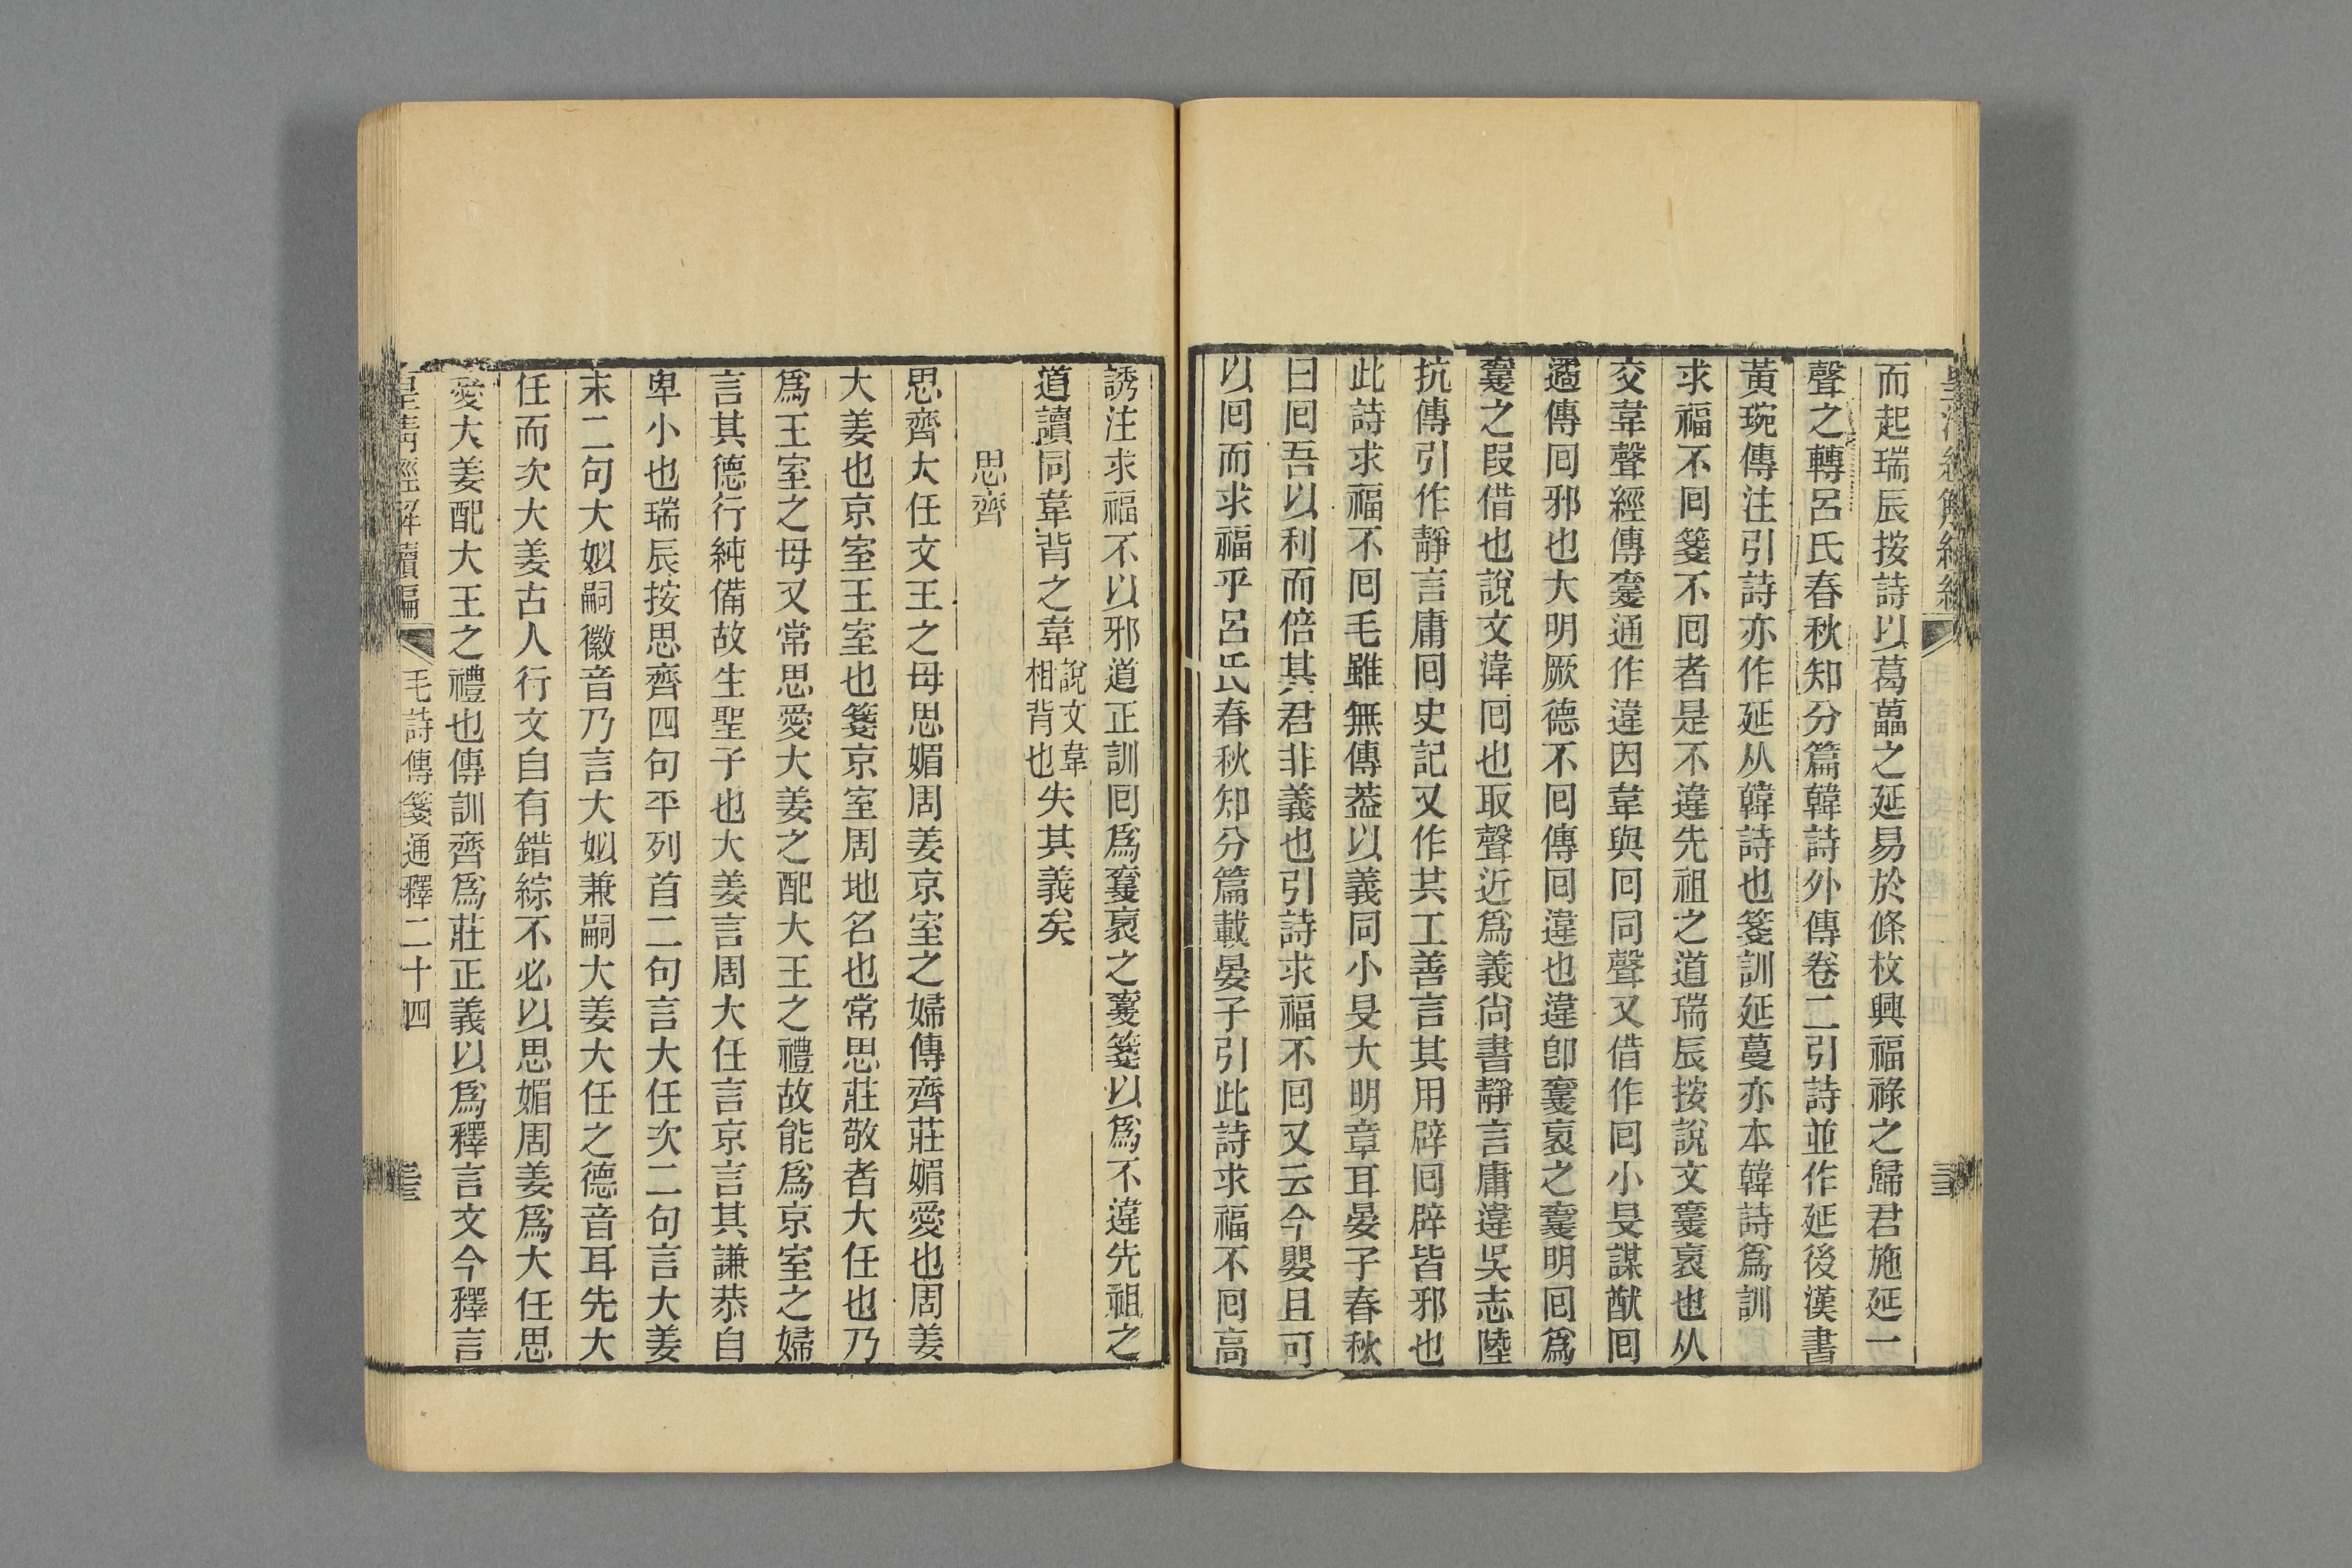 而起瑞辰按詩以葛藟之延易於條枚興福祿之歸君施延一
聲之轉呂氏春秋知分篇韓詩外傳卷二引詩並作延後漢書
黃琬傳注引詩亦作延从韓詩也箋訓延蔓亦本韓詩爲訓
求福不回箋不回者是不違先祖之道瑞辰按說文䙜衺也从
交韋聲經傳䙜通作違因韋與回同聲又借作回小旻謀猷回
遹傳回邪也大明厥德不回傳回違也違卽䙜衺之䙜明回爲
䙜之叚借也說文湋回也取聲近爲義尙書靜言庸違吳志陸
抗傳引作靜言庸回史記又作共工善言其用辟回辟皆邪也
此詩求福不回毛雖無傳葢以義同小旻大明章耳晏子春秋
曰回吾以利而倍其君非義也引詩求福不回又云今嬰且可
以回而求福乎呂氏春秋知分篇載晏子引此詩求福不回高
誘注求福不以邪道正訓回爲䙜衺之䙜箋以爲不違先祖之
道讀同韋背之韋說文韋相背也失其義矣
思齊
思齊大任文王之母思媚周姜京室之婦傳齊莊媚愛也周姜
大姜也京室王室也箋京室周地名也常思莊敬者大任也乃
爲王室之母又常思愛大姜之配大王之禮故能爲京室之婦
言其德行純備故生聖子也大姜言周大任言京言其謙恭自
卑小也瑞辰按思齊四句平列首二句言大任次二句言大姜
末二句大姒嗣徽音乃言大姒兼嗣大姜大任之德音耳先大
任而次大姜古人行文自有錯綜不必以思媚周姜爲大任思
愛大姜配大王之禮也傳訓齊爲莊正義以爲釋言文今釋言
皇淸經解續編 毛詩傳箋通釋二十四